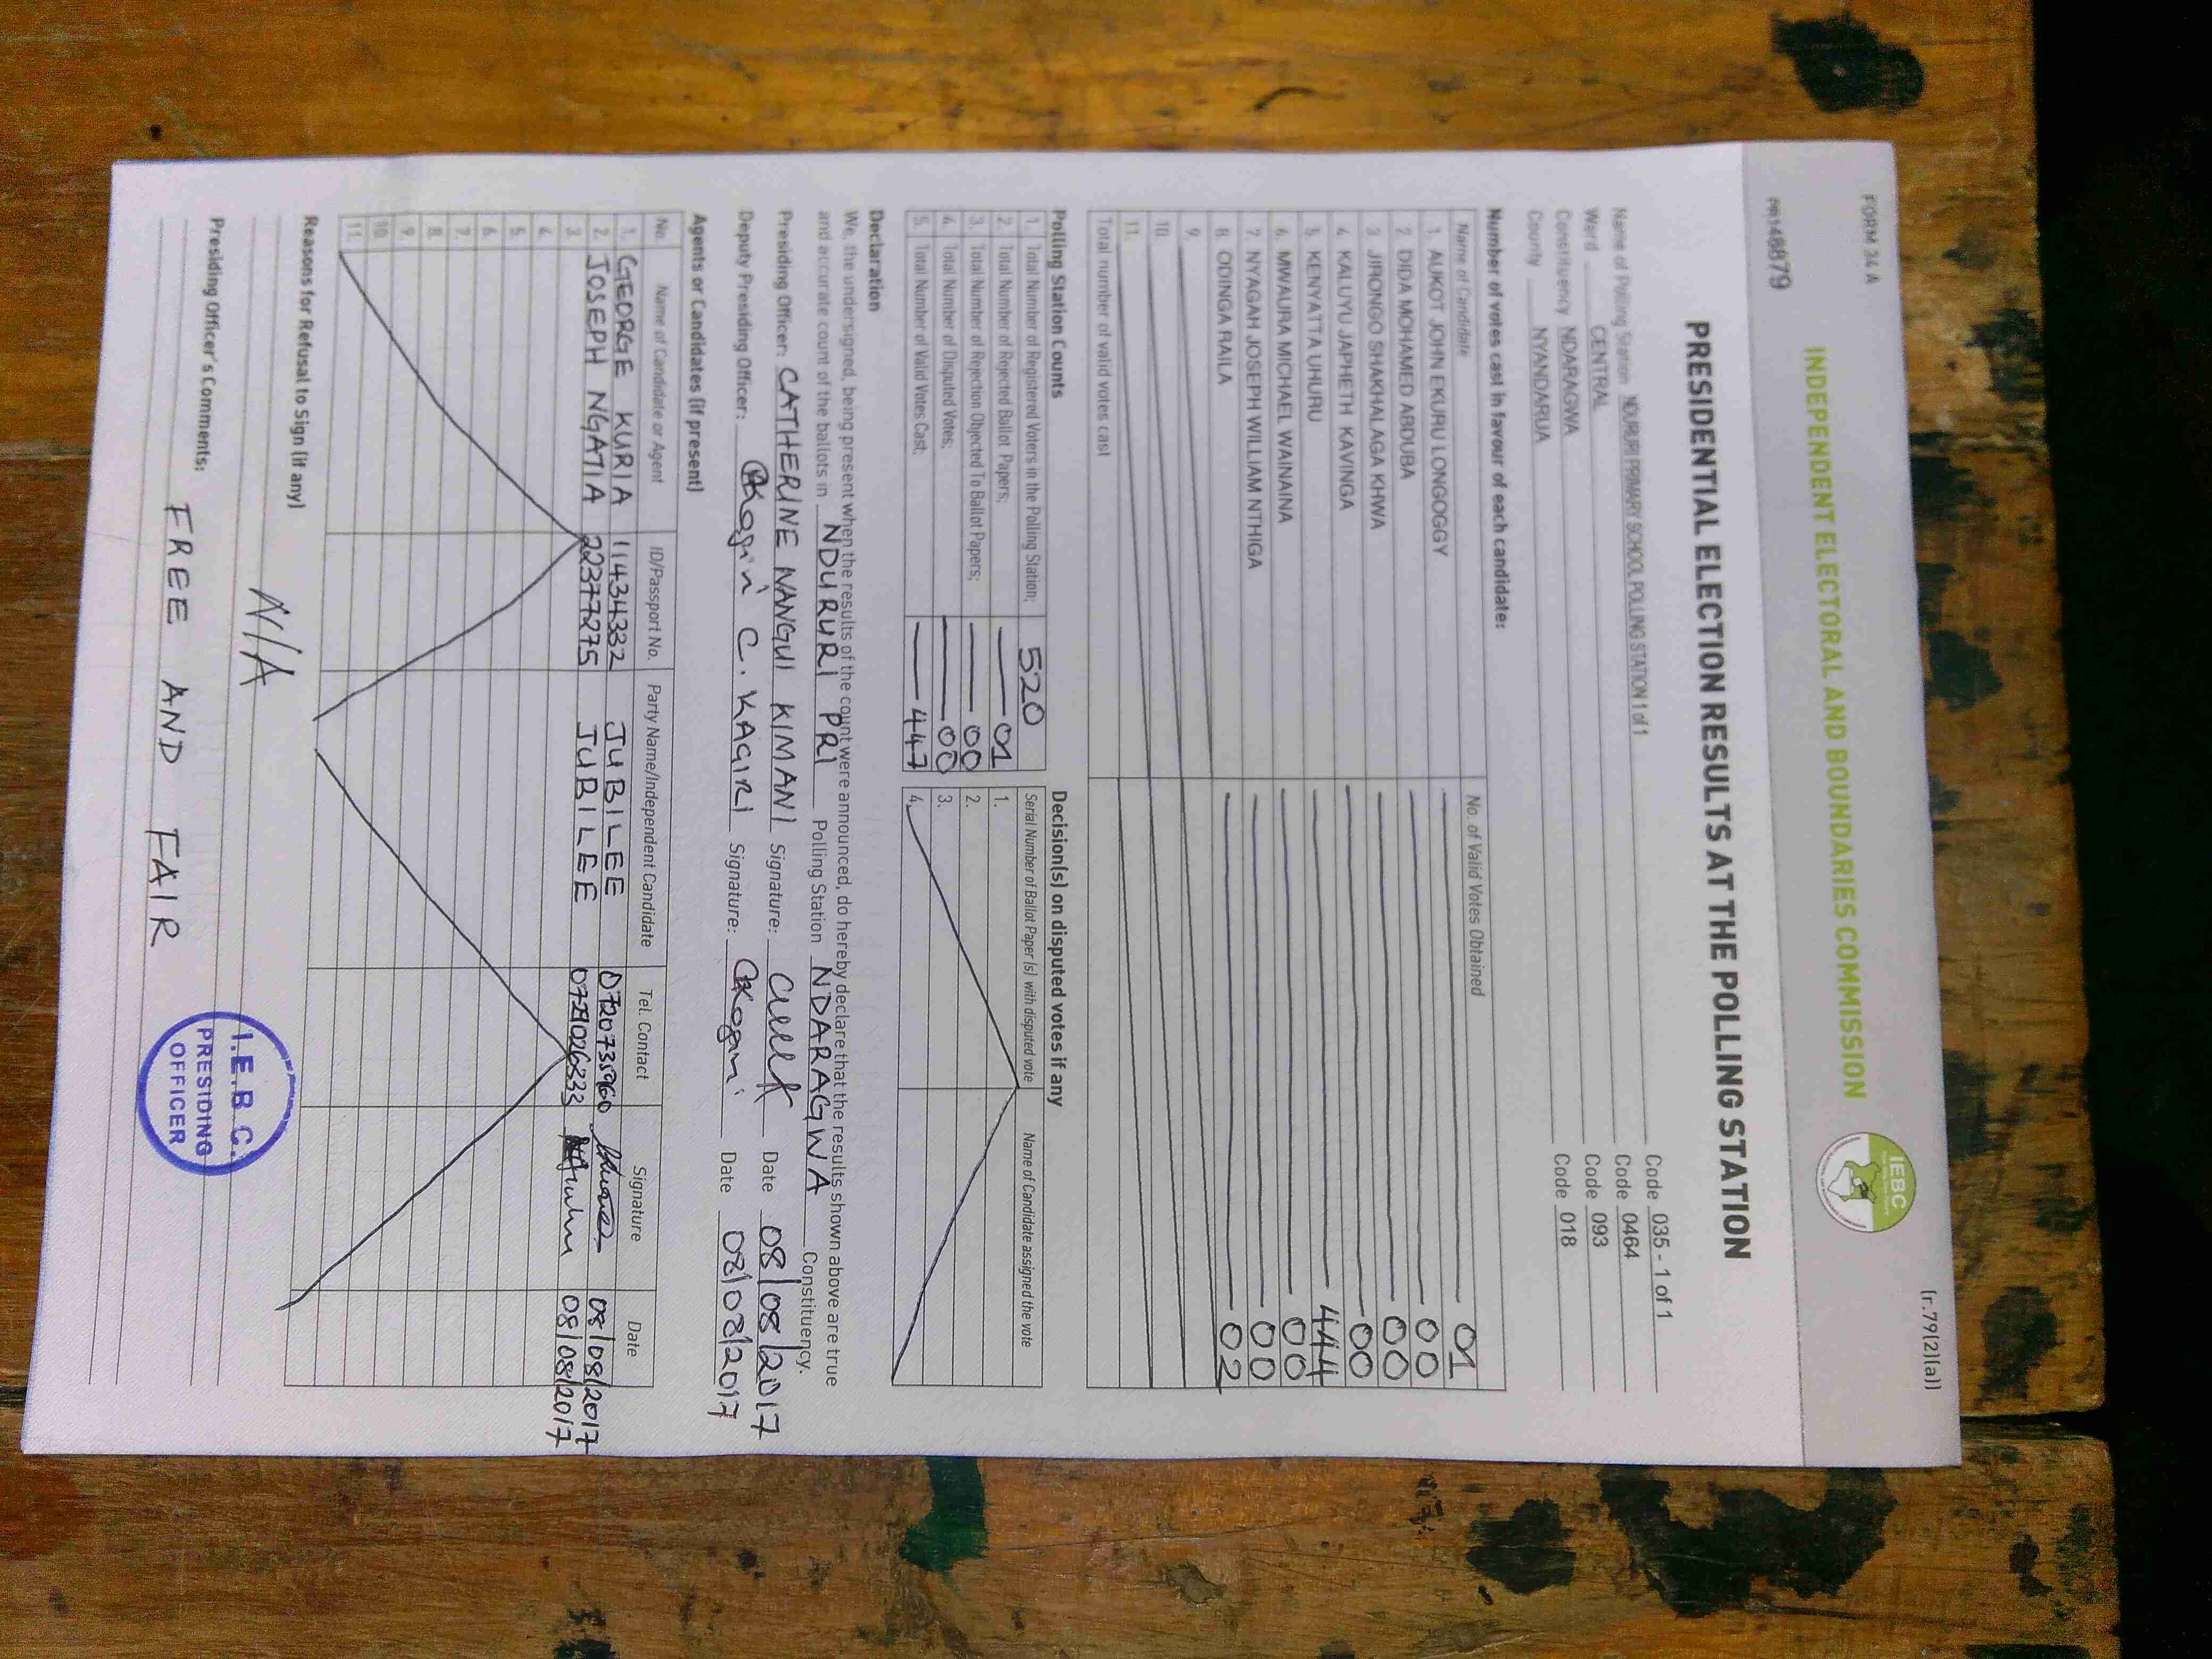 FORM 34 A
(r.79(2)(a))
INDEPENDENT ELECTORAL AND BOUNDARIES COMMISSION
IEBC
PR148879
PRESIDENTIAL ELECTION RESULTS AT THE POLLING STATION
Name of Polling Station NDURURI PRIMARY SCHOOL POLLING STATION 1 of 1 Code 035 - 1 of 1
Ward CENTRAL Code 0464
Constituency NDARAGWA Code 093
County NYANDARUA Code 018
Number of votes cast in favour of each candidate:
Name of Candidate No. of Valid Votes Obtained
1. AUKOT JOHN EKURU LONGOGGY 01
2. DIDA MOHAMED ABDUBA 00
3. JIRONGO SHAKHALAGA KHWA 00
4. KALUYU JAPHETH KAVINGA 00
5. KENYATTA UHURU 444
6. MWAURA MICHAEL WAINAINA 00
7. NYAGAH JOSEPH WILLIAM NTHIGA 00
8. ODINGA RAILA 02
9.
10.
11.
Total number of valid votes cast
Polling Station Counts
1. Total Number of Registered Voters in the Polling Station; 520
2. Total Number of Rejected Ballot Papers; 01
3. Total Number of Rejection Objected To Ballot Papers; 00
4. Total Number of Disputed Votes; 00
5. Total Number of Valid Votes Cast; 447
Decision(s) on disputed votes if any
Serial Number of Ballot Paper (s) with disputed vote Name of Candidate assigned the vote
1.
2.
3.
4.
Declaration
We, the undersigned, being present when the results of the count were announced, do hereby declare that the results shown above are true
and accurate count of the ballots in NDURURI PRI Polling Station NDARAGWA Constituency.
Presiding Officer: CATHERINE NANGUI KIMANI Signature: Date 08/08/2017
Deputy Presiding Officer: C. KAGIRI Signature: Date 08/08/2017
Agents or Candidates (if present)
No. Name of Candidate or Agent ID/Passport No. Party Name/Independent Candidate Tel. Contact Signature Date
1. GEORGE KURIA 11434332 JUBILEE 0720735960 08/08/2017
2. JOSEPH NGATIA 22377275 JUBILEE 08/08/2017
3.
4.
5.
6.
7.
8.
9.
10.
11.
Reasons for Refusal to Sign (if any)
N/A
Presiding Officer's Comments:
FREE AND FAIR
I.E.B.C.
PRESIDING
OFFICER